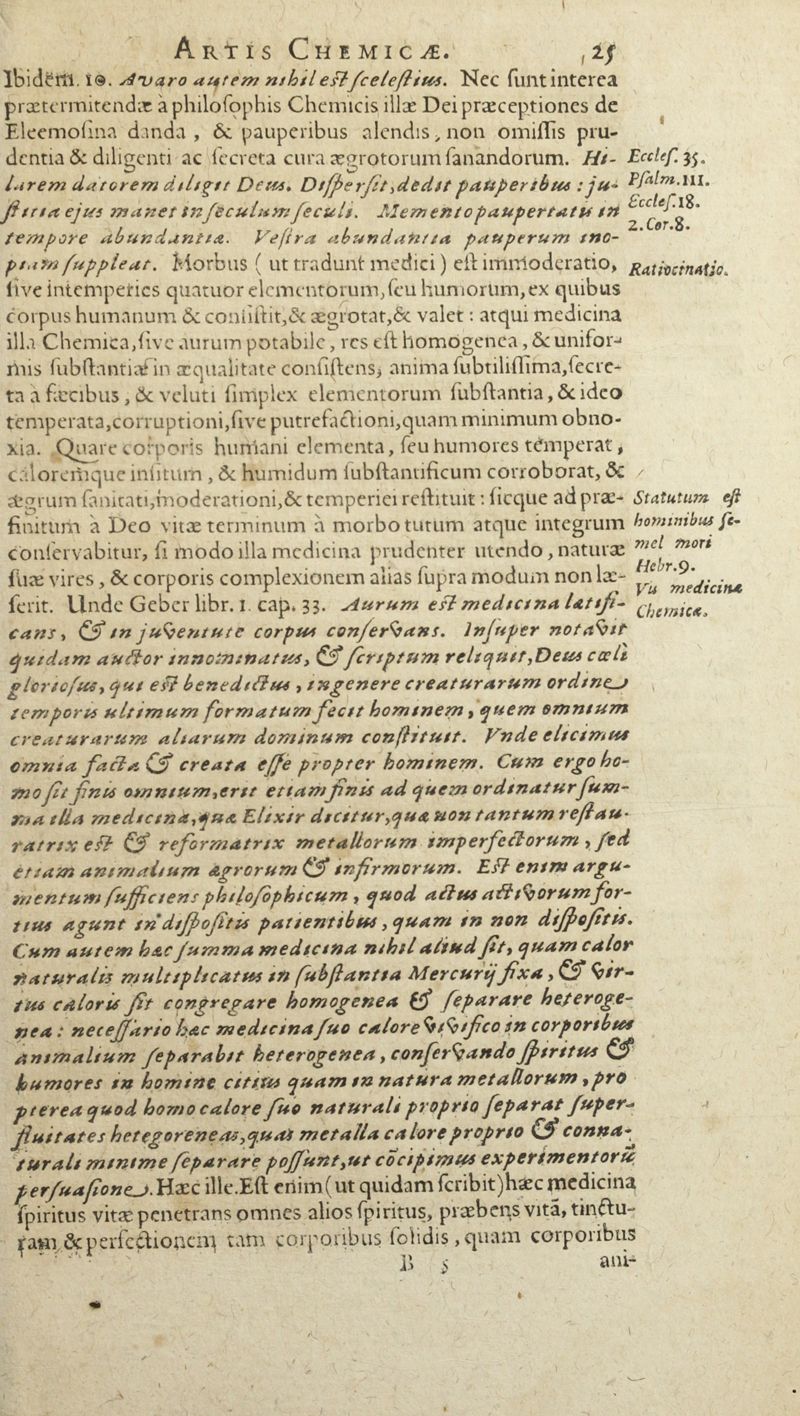 ARTIS CHEMICÆ. 25
Ibidem. 10. Avaro autem nihil est scelestius. Nec sunt interea
prætermitendæ à philosophis Chemicis illæ Dei præceptiones de
Eleemosina danda , & pauperibus alendis, non omissis pru-
dentia & diligenti ac secreta cura ægrotorum sanandorum. Hi-
larem datorem diligit Deus. Disperſit,dedit pauperibus : ju-
stitia ejus manet in ſeculum ſeculi. Memento paupertatis in
tempore abundantiæ. Veſtra abundantia pauperum ino-
piam ſuppleat. Morbus ( ut tradunt medici ) eſt immoderatio,
ſive intemperies quatuor elementorum,ſeu humorum,ex quibus
corpus humanum & conſiſtit,& ægrotat,& valet : atqui medicina
illa Chemica,ſive aurum potabile, res eſt homogenea, & unifor-
mis ſubſtantiæ in æqualitate conſiſtens, anima ſubtiliſſima,ſecre-
ta à fæcibus , & veluti ſimplex elementorum ſubſtantia, & ideo
temperata,corruptioni,ſive putrefactioni,quam minimum obno-
xia. Quare corporis humani elementa, ſeu humores temperat ,
caloremque inſitum , & humidum ſubſtantificum corroborat, &
ægrum ſanitati,moderationi,& temperiei reſtituit : ſicque ad præ-
finitum à Deo vitæ terminum à morbo tutum atque integrum
conſervabitur, ſi modo illa medicina prudenter utendo , naturæ
ſuæ vires , & corporis complexionem alias ſupra modum non læ-
ſerit. Unde Geber libr. 1. cap. 33. Aurum eſt medicina lætifi-
cans, & in juventute corpus conſervans. Inſuper notavit
quidam auctor innominatus, & ſcriptum reliquit,Deus cœli
glorioſus, qui eſt benedictus , in genere creaturarum ordine
temporis ultimum formatum fecit hominem , quem omnium
creaturarum aliarum dominum conſtituit. Vnde elicimus
omnia facta & creata eſſe propter hominem. Cum ergo ho-
mo ſit finis omnium,erit etiam finis ad quem ordinatur ſum-
ma illa medicina,quæ Elixir dicitur,quæ non tantum reſtau-
ratrix eſt & reformatrix metallorum imperfectorum , ſed
etiam animalium ægrorum & infirmorum. Eſt enim argu-
mentum ſufficiens philoſophicum , quod actus activorum for-
tius agunt in diſpoſitis patientibus , quam in non diſpoſitis.
Cum autem hæc ſumma medicina nihil aliud ſit, quam calor
naturalis multiplicatus in ſubſtantia Mercurij fixa , & vir-
tus caloris ſit congregare homogenea & ſeparare heteroge-
nea : neceſſario hæc medicina ſuo calore vivifico in corporibus
animalium ſeparabit heterogenea , conſervando ſpiritus &
humores in homine citius quam in natura metallorum , pro
pterea quod homo calore ſuo naturali proprio ſeparat ſuper-
fluitates hetegoreneas,quas metalla calore proprio & conna-
turali minime ſeparare poſſunt,ut cōcipimus experimentorū
perſuaſione. Hæc ille. Eſt enim ( ut quidam ſcribit ) hæc medicina
ſpiritus vitæ penetrans omnes alios ſpiritus, præbens vitā, tinctu-
ram, & perfectionem tam corporibus ſolidis , quam corporibus
B 5 ani-
Eccleſ. 35.
Pſalm. 111.
Eccleſ. 18.
2. Cor. 8.
Ratiocinatio.
Statutum eſt
hominibus ſe-
mel mori
Hebr. 9.
Vis medicinæ
Chemicæ.